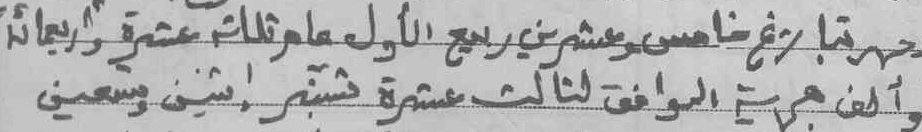 حرر بتاريخ خامس وعشرين ربيع الأول عام ثلاثة عشرة وأربعمائة
وألف هجرية الموافق لثالث عشرة شتنبر إثنين وتسعين